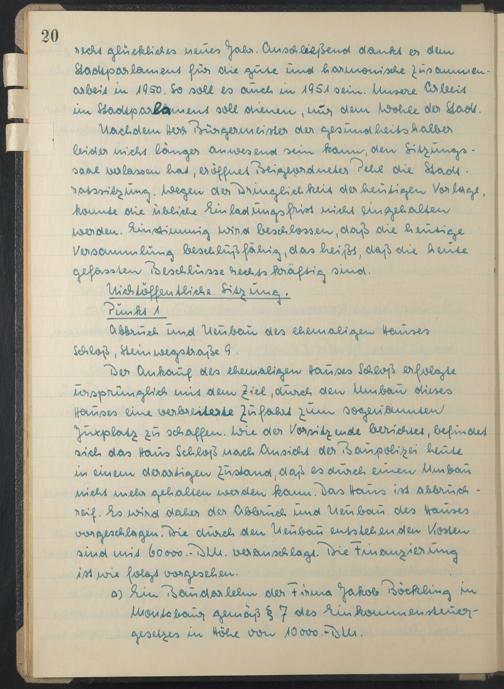 20
recht glückliches neues Jahr. Anschließend dankt er dem
Stadtparlament für die gute und harmonische Zusammen-
arbeit in 1950. So soll es auch in 1951 sein. Unsere Arbeit
im Stadtparlament soll dienen, nur dem Wohle der Stadt.
Nachdem Herr Bürgermeister der gesundheitshalber
leider nicht länger anwesend sein kann, den Sitzungs-
saal verlassen hat, eröffnet Beigeordneter Pehl die Stadt-
ratssitzung. Wegen der Dringlichkeit der heutigen Vorlage,
konnte die übliche Einladungsfrist nicht eingehalten
werden. Einstimmig wird beschlossen, daß die heutige
Versammlung beschlußfähig, das heißt, daß die heute
gefassten Beschlüsse rechtskräftig sind.
Nichtöffentliche Sitzung.
Punkt 1
Abbruch und Neubau des ehemaligen Hauses
Schloß, Steinwegstraße 9.
Der Ankauf des ehemaligen Hauses Schloß erfolgte
ursprünglich mit dem Ziel, durch den Umbau dieses
Hauses eine verbreiterte Zufahrt zum sogenannten
Juxplatz zu schaffen. Wie der Vorsitzende berichtet, befindet
sich das Haus Schloß nach Ansicht der Baupolizei heute
in einem derartigen Zustand, daß es durch einen Umbau
nicht mehr gehalten werden kann. Das Haus ist abbruch-
reif. Es wird daher der Abbruch und Neubau des Hauses
vorgeschlagen. Die durch den Neubau entstehenden Kosten
sind mit 60000.-DM. veranschlagt. Die Finanzierung
ist wie folgt vorgesehen.
a) Ein Baudarlehn der Firma Jakob Böckling in
Montabaur gemäß § 7 des Einkommensteuer-
gesetzes in Höhe von 10000.-DM.